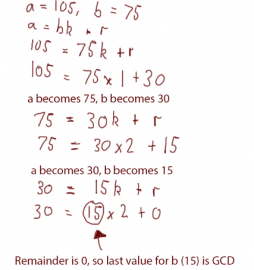 a = 105, b = 75
a = bk + r
105 = 75k + r
105 = 75 x 1 + 30
a becomes 75, b becomes 30
75 = 30k + r
75 = 30 x 2 + 15
a becomes 30, b becomes 15
30 = 15k + r
30 = 15 x 2 + 0
Remainder is 0, so last value for b (15) is GCD